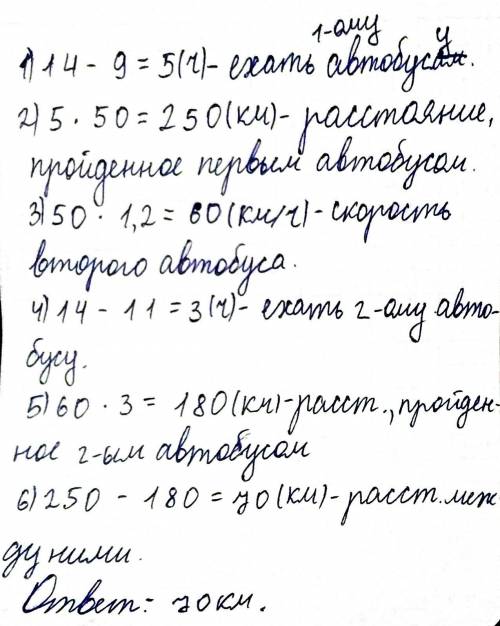 1-ому
1) 14 - 9 = 5(ч) - ехать автобусу.
2) 5 · 50 = 250(км) - расстояние,
пройденное первым автобусом.
3) 50 · 1,2 = 60(км/ч) - скорость
второго автобуса.
4) 14 - 11 = 3(ч) - ехать 2-ому авто-
бусу.
5) 60 · 3 = 180(км) - расст., пройден-
ное 2-ым автобусом
6) 250 - 180 = 70(км) - расст. меж
ду ними.
Ответ: 70км.